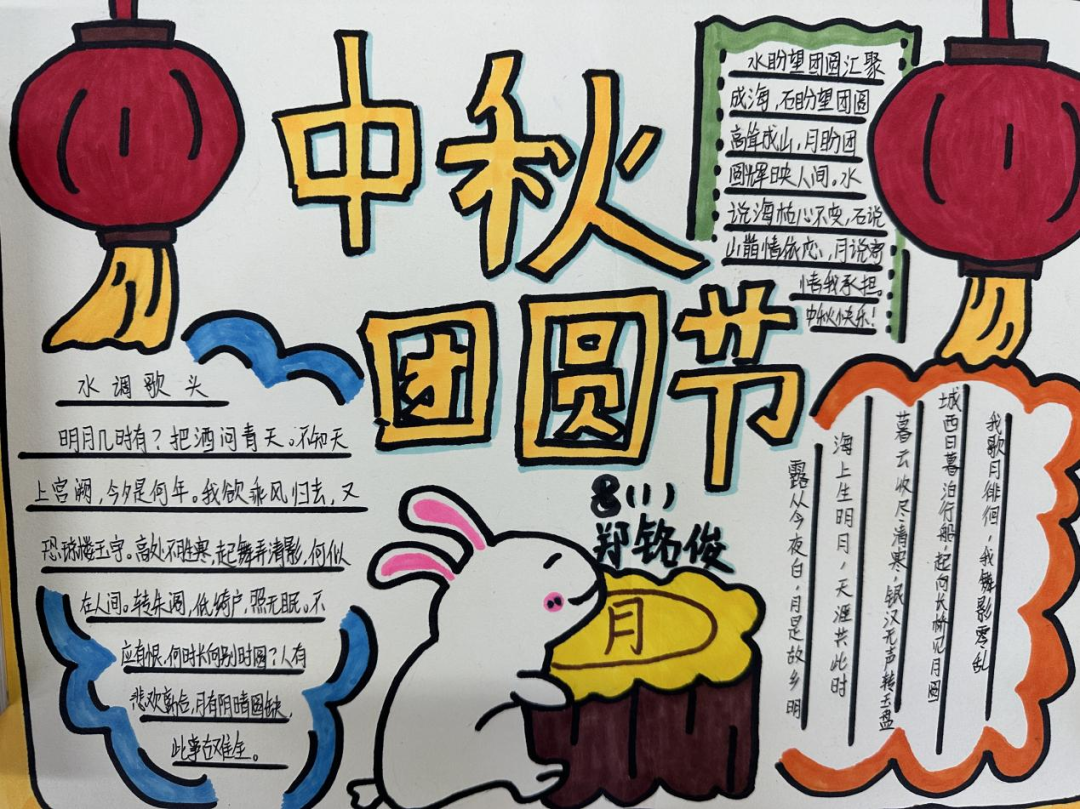 中秋
团圆节
水盼望团圆汇聚
成海,石盼望团圆
高耸成山,月盼团
圆辉映人间。水
说海枯心不变,石说
山崩情依恋,月说寄
情我承担。
中秋快乐!
水调歌头
明月几时有?把酒问青天。不知天
上宫阙,今夕是何年。我欲乘风归去,又
恐琼楼玉宇。高处不胜寒,起舞弄清影,何似
在人间。转朱阁,低绮户,照无眠。不
应有恨,何时长向别时圆?人有
悲欢离合,月有阴晴圆缺,
此事古难全。
8(1)
郑铭俊
月
我歌月徘徊,我舞影零乱
城西日暮泊行船,起向长桥见月圆
暮云收尽溢清寒,银汉无声转玉盘
海上生明月,天涯共此时
露从今夜白,月是故乡明